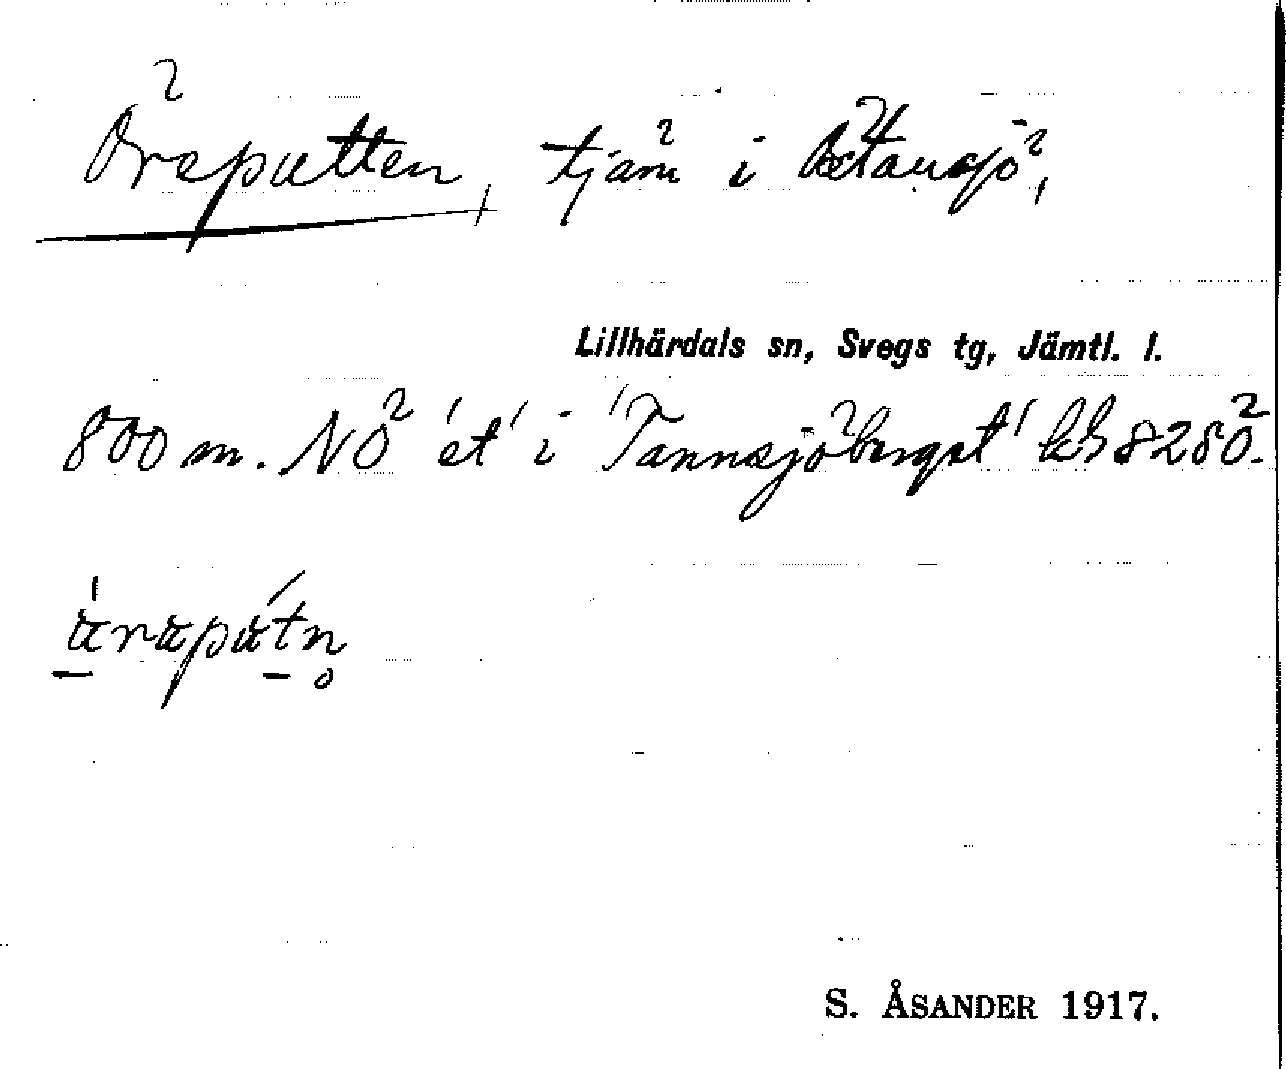 Öraputten, tjärn i Östansjö,
Lillhärdals sn, Svegs tg, Jämtl. l.
800 m. NÖ 'et' i 'Tannsjöberget' kb 828Ö.
S. ÅSANDER 1917.